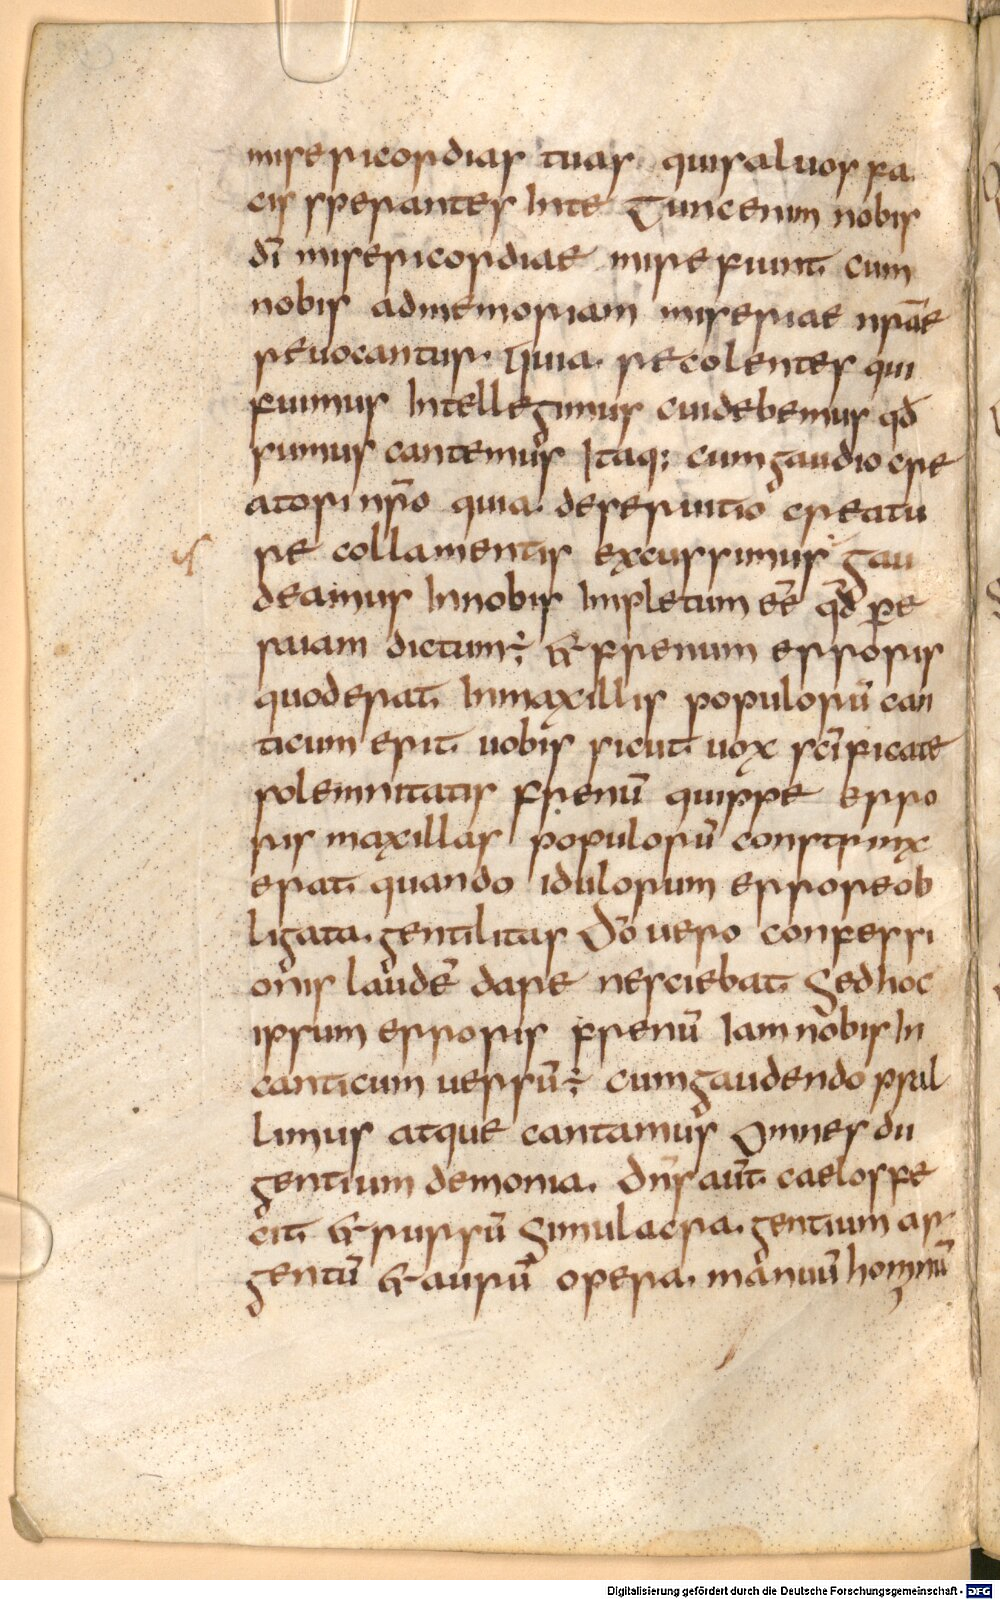 misericordias tuas qui saluos fa
cis sperantes In te Tunc enim nobis
dī misericordiae mire fiunt cum
nobis ad memoriam miseriae nrāe
reuocantur. Quia recolentes qui
fuimus Intellegimus cui debemus qd̄
sumus cantemus Itaq; cum gaudio cre
atori nr̄o quia de seruitio creatu
re collamentis excussimus gau
deamus In nobis Impletum eē qd̄ pe
saiam dictum÷ & frenum erroris
quod erat In maxillis populorū can
ticum erit uobis sicut uox scīficate
solemnitatis frenū quippe erro
ris maxillas populorū constrinx
erat quando idulorum errore ob
ligata gentilitas dō uero confessi
onis laudē dare nesciebat Sed hoc
ipsum erroris frenū Iam nobis In
canticum uersū÷ cum gaudendo psal
limus atque cantamus Omnes dii
gentium demonia. dn̄s aūt caelos fe
cit & rursū Simulacra gentium ar
gentū & aurū opera manuū hominū
Digitalisierung gefördert durch die Deutsche Forschungsgemeinschaft - DFG